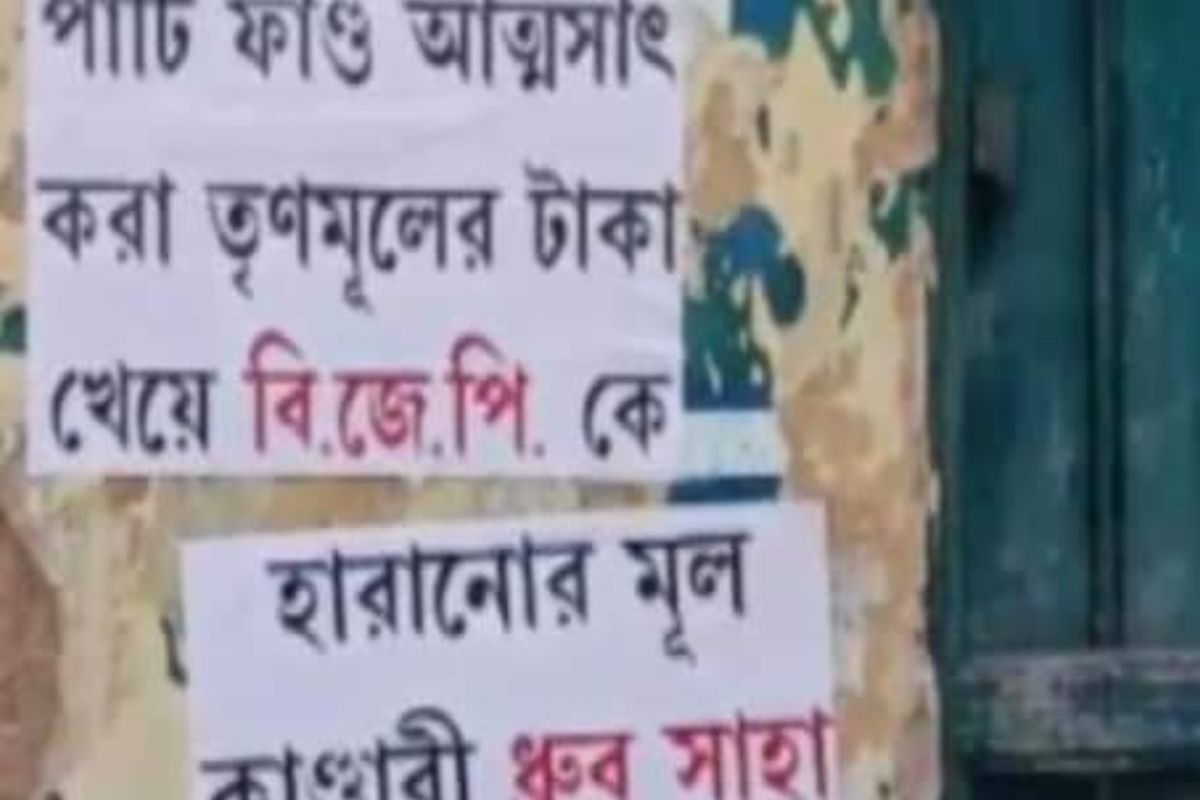 পার্টি ফাণ্ড আত্মসাৎ
করা তৃণমূলের টাকা
খেয়ে বি.জে.পি. কে
হারানোর মূল
কাণ্ডারী ধ্রুব সাহা